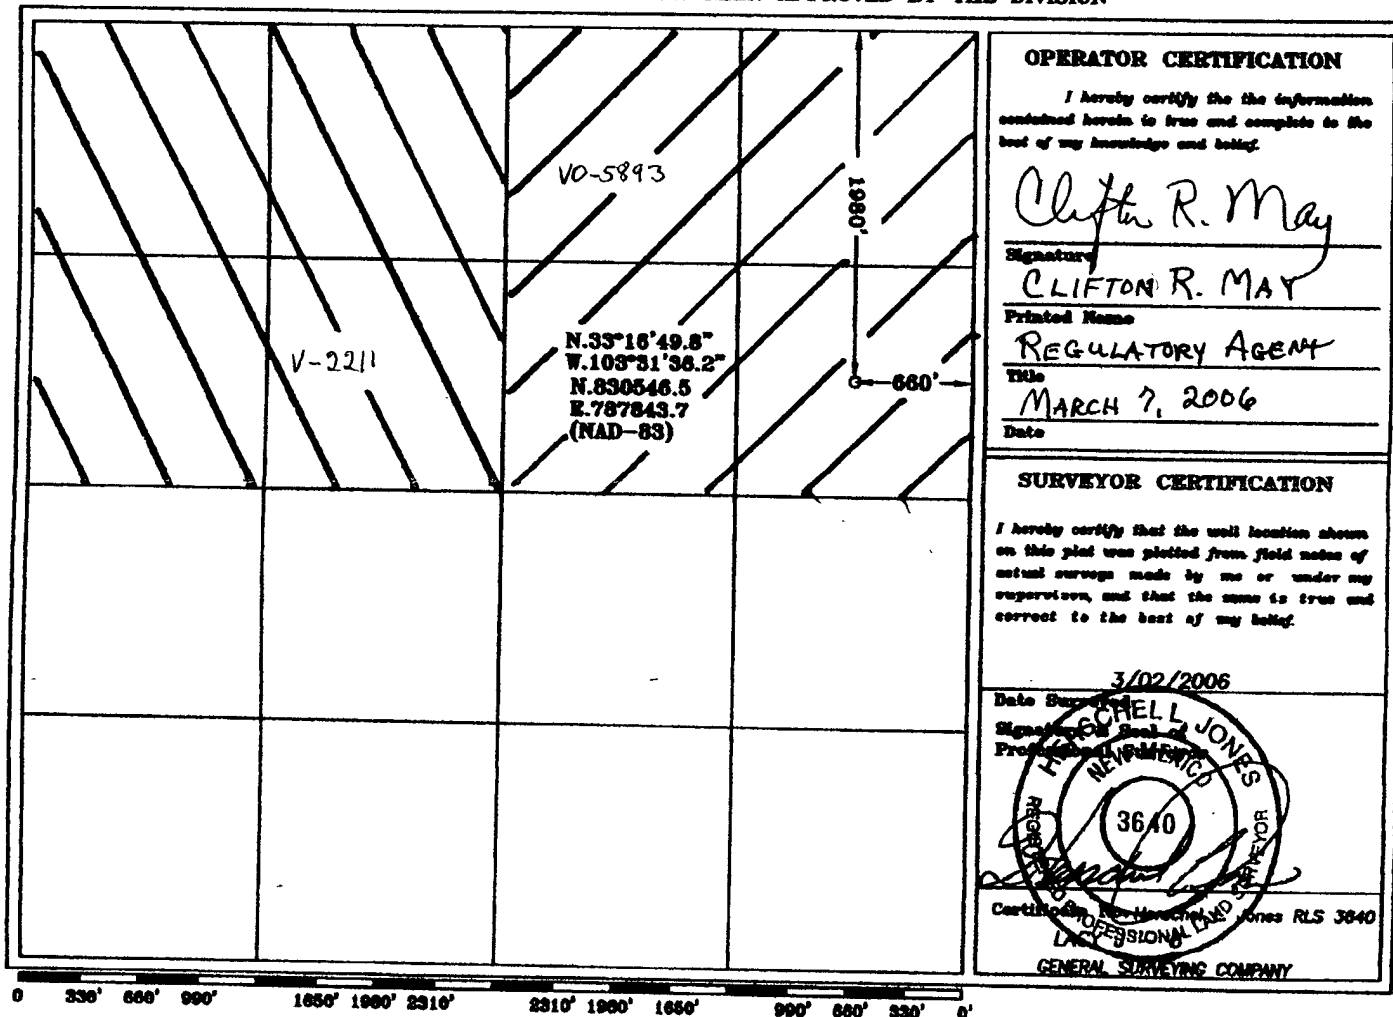 APPROVED BY THE DIVISION
VO-5893
1980'
V-2211
N.33°16'49.8"
W.103°31'36.2"
N.830546.5
E.787843.7
(NAD-83)
660'
0 330' 660' 990' 1650' 1980' 2310' 2310' 1980' 1650' 990' 660' 330' 0'
OPERATOR CERTIFICATION
I hereby certify the the information
contained herein is true and complete to the
best of my knowledge and belief.
Clifton R. May
Signature
CLIFTON R. MAY
Printed Name
REGULATORY AGENT
Title
MARCH 7, 2006
Date
SURVEYOR CERTIFICATION
I hereby certify that the well location shown
on this plat was plotted from field notes of
actual surveys made by me or under my
supervison, and that the same is true and
correct to the best of my belief.
3/02/2006
Date Surveyed
Signature & Seal of
Professional Surveyor
HERSCHELL JONES
NEW MEXICO
3640
REGISTERED PROFESSIONAL LAND SURVEYOR
Certificate No. Herschel Jones RLS 3640
GENERAL SURVEYING COMPANY